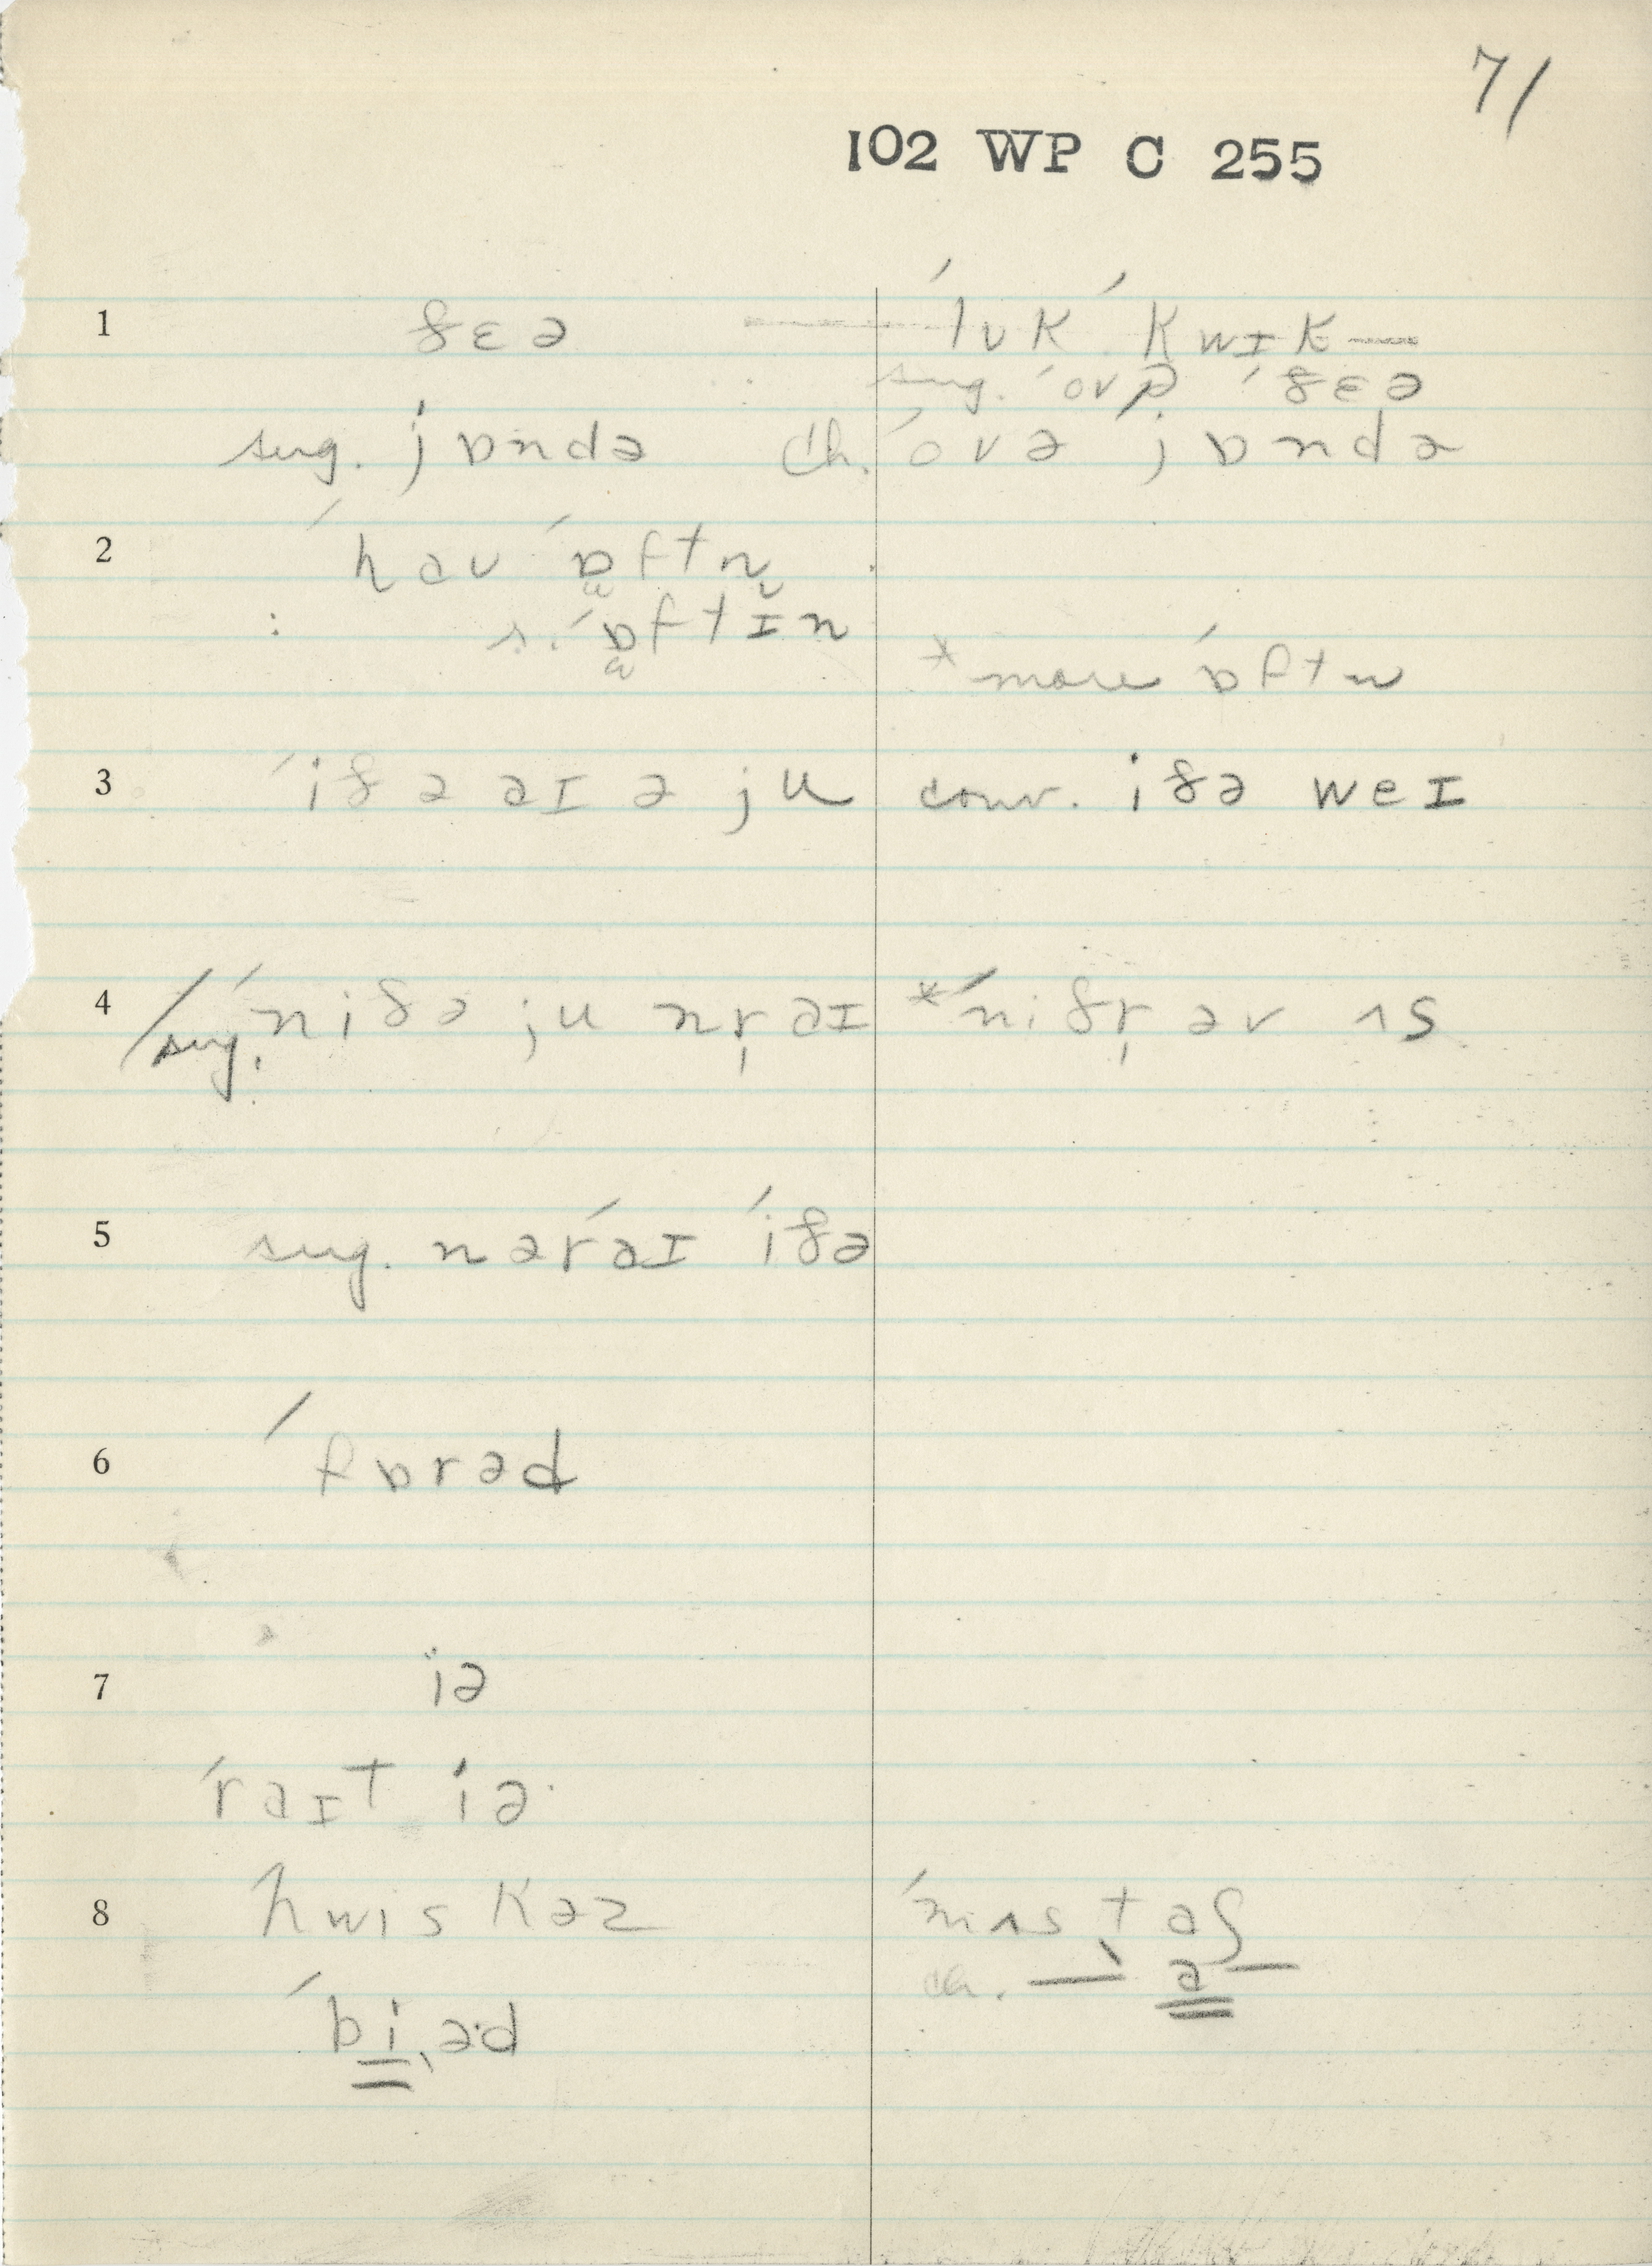 71
102 WP C 255
1 ðɛə — ˈlʊk ˈkwɪk —
sug. ˈovə ˈðɛə
sug. jɒndə ch. ˈovə jɒndə
2 ˈhaʊ ˈɒftn̩
: s. ˈɒftɪn
* more ˈɒftn
3 ˈiðə aɪ ə ju conv. iðə weɪ
4 / sug. ˈniðə ju nr̩ aɪ * ˈniðr̩ əv ʌs
5 sug. nərˈaɪ ˈiðə
6 ˈfɒrəd
7 iə
ˈraɪt iə
8 hwiskəz ˈmʌstaʃ
ch. — ə —
ˈbi̳,əd